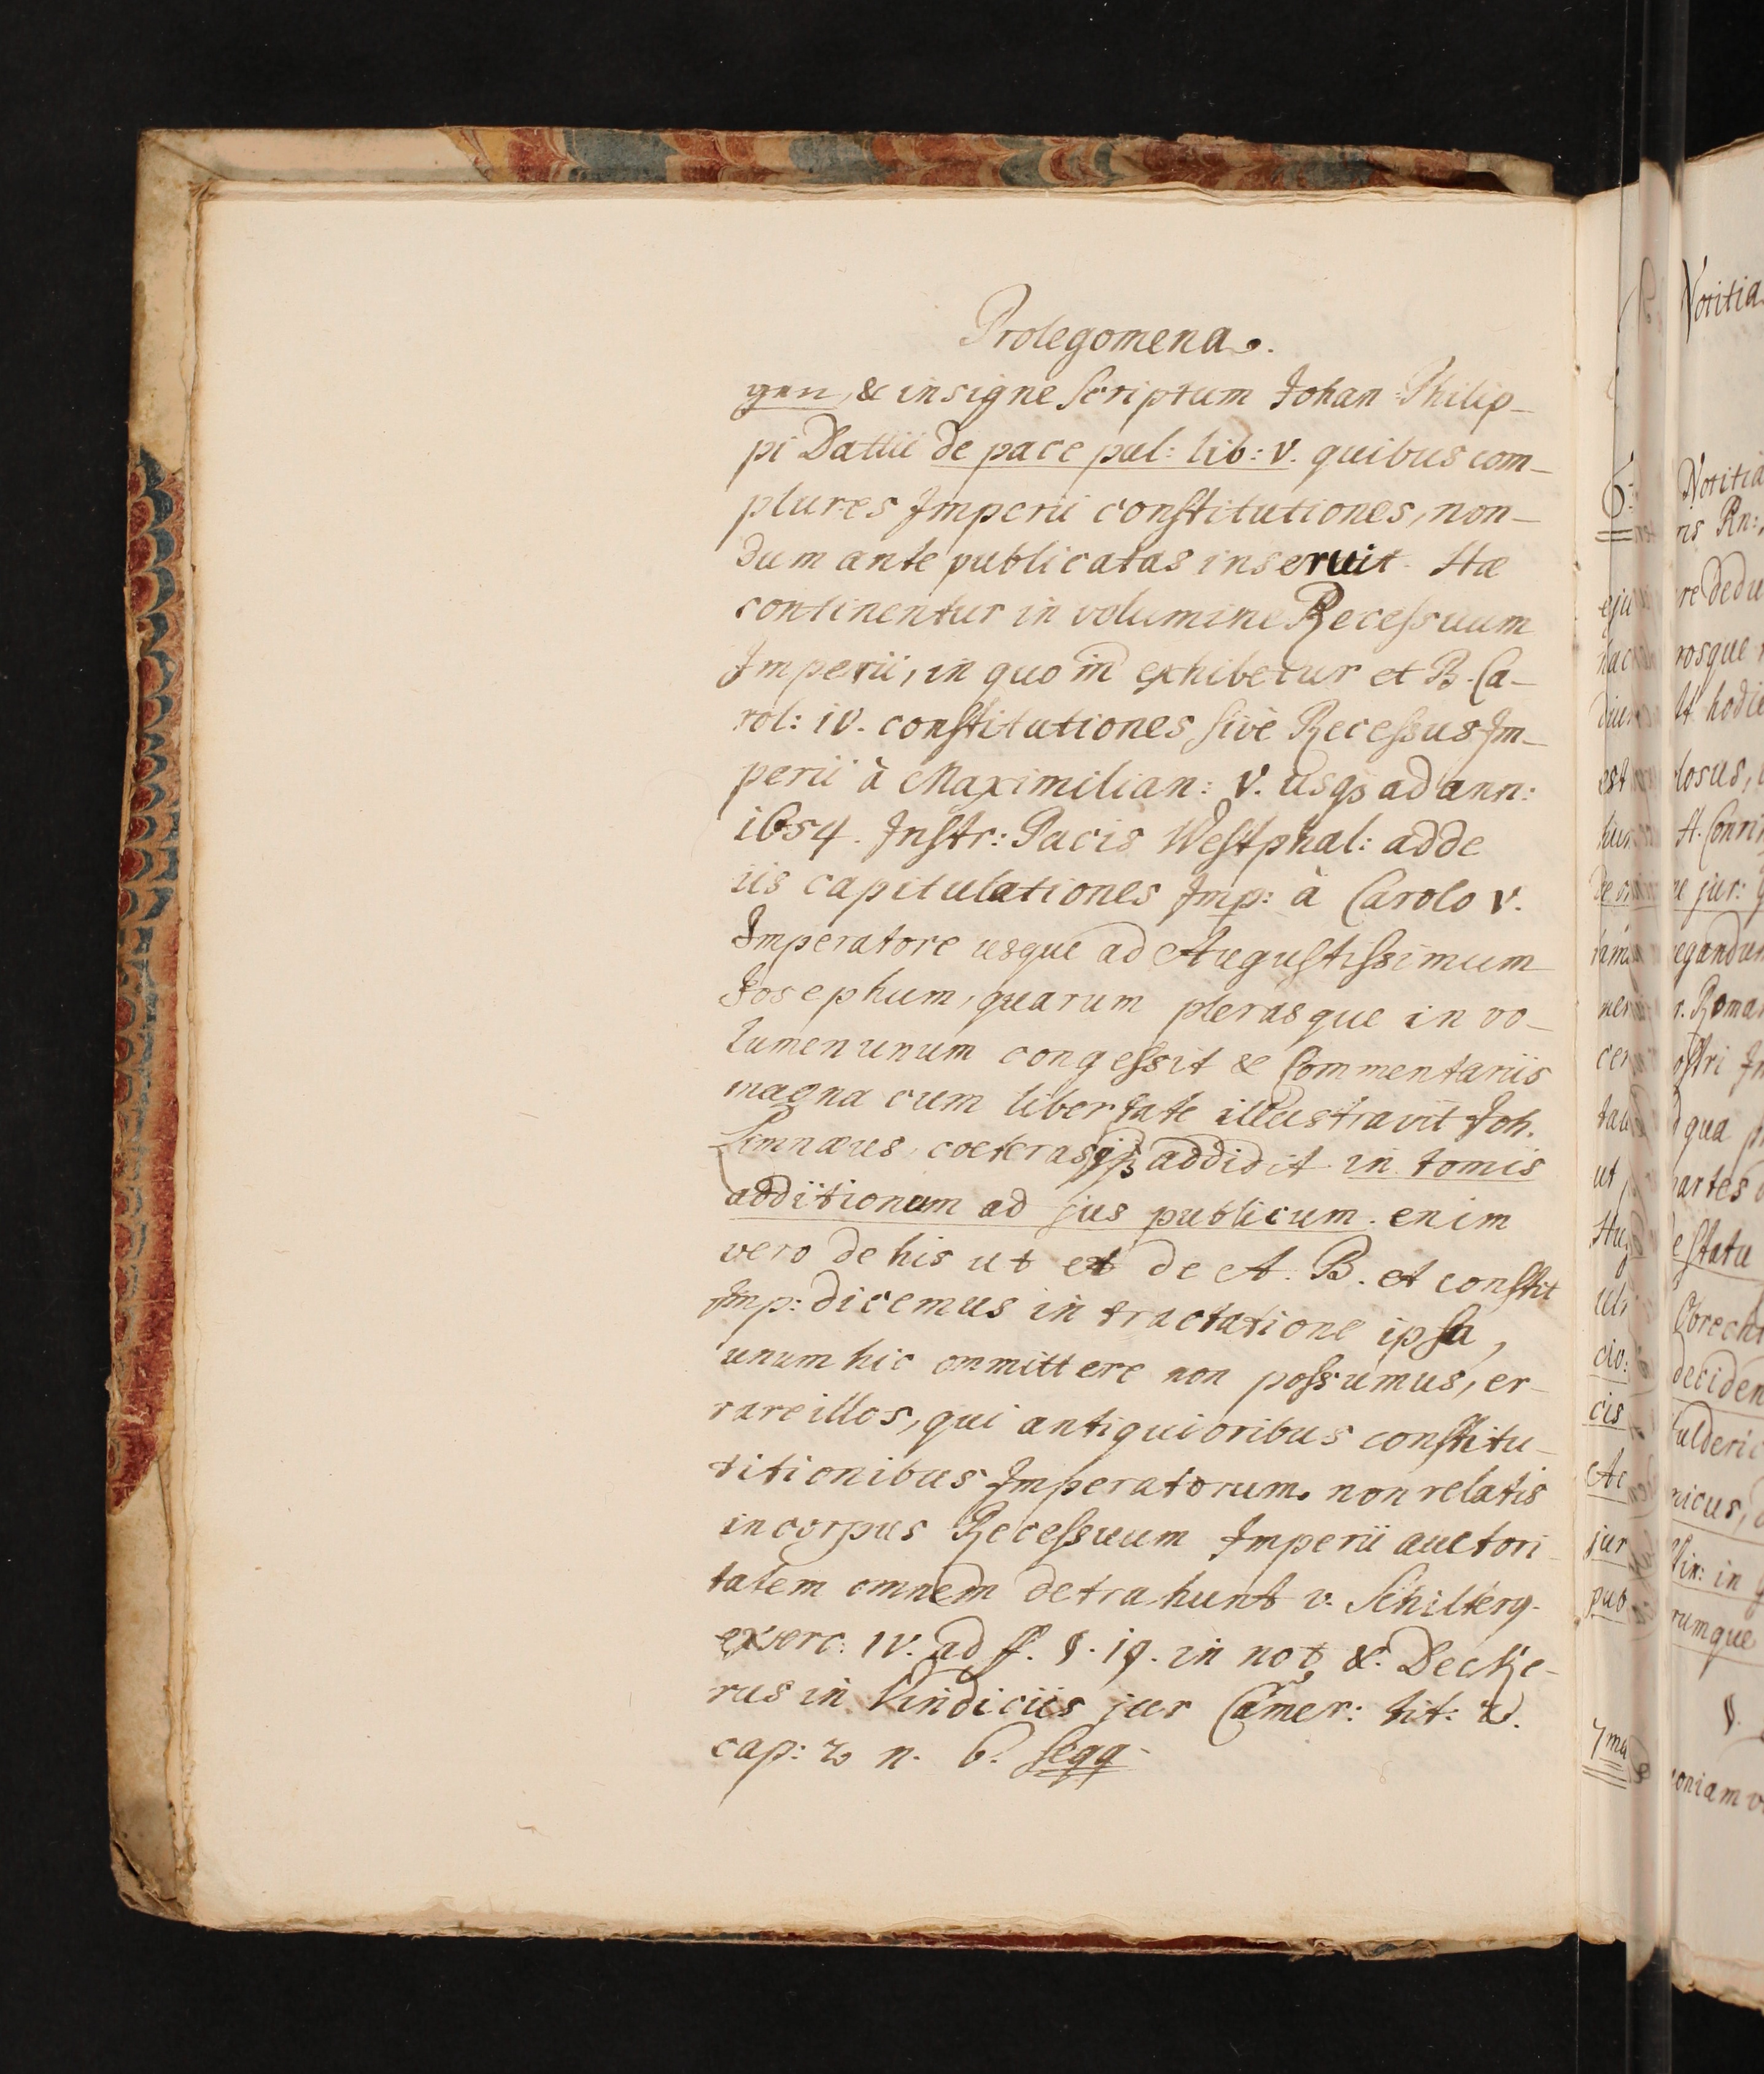 Prolegomena.
gen, & insigne scriptum Johan Philip-
pi Dattii de pace pul: lib: V. quibus com-
plures Imperii constitutiones, non-
dum ante publicatas inseruit. Hæ
continentur in volumine Recessuum
Imperii, in quo exhibetur et B. Ca-
rol: IV. constitutiones sive Recessus Im-
perii à Maximilian: V. usq3 ad ann:
1654. Instr: Pacis Westphal: adde
iis capitulationes Imp: à Carolo V.
Imperatore usque ad Augustissimum
Josephum, quarum plerasque in vo-
lumen unum congessit & Commentariis
magna cum libertate illustravit Joh.
Limnæus, coeterasq3 addidit in tomis
additionum ad jus publicum. enim
vero de his ut et de A. B. et constit
Imp: dicemus in tractatione ipsa,
unum hic ommittere non possumus, er-
rare illos, qui antiquioribus constitu-
titionibus Imperatorum. non relatis
in corpus Recessuum Imperii auctori-
tatem omnem detrahunt v. Schilterg.
exerc: IV. ad ff. §. 19. in not, &. Decke-
rus in Vindiciis jur Camer: tit:
cap: 2 n. 6. seqq.
Notitia
Notitia
ris Rn:
re dedu
rosque
Ut hodie
losus,
H. Conri
jur:
egandum
r. Roma
ostri Im
qua
artes
e statu
Obrecht
deciden
ulderic
nicus,
in
rumque
§.
oniam v
6:
eju
hac
est
ut
Hug
civ:
cis
jur
pub
7ma